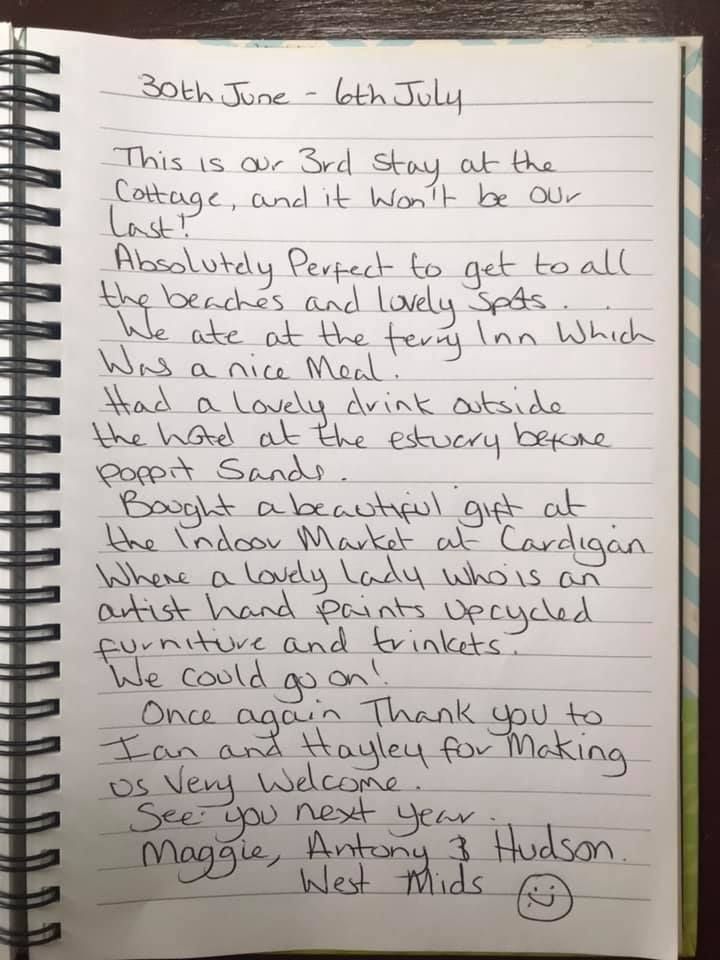 30th June - 6th July
This is our 3rd Stay at the
Cottage, and it won't be our
last!
Absolutely Perfect to get to all
the beaches and lovely Spots.
We ate at the ferry Inn Which
Was a nice Meal.
Had a lovely drink outside
the hotel at the estuery before
poppit Sands.
Bought a beautiful gift at
the Indoor Market at Cardigan
Where a lovely lady who is an
artist hand paints upcycled
furniture and trinkets.
We could go on!
Once again Thank you to
Ian and Hayley for Making
us Very Welcome.
See you next year.
Maggie, Antony & Hudson.
West Mids